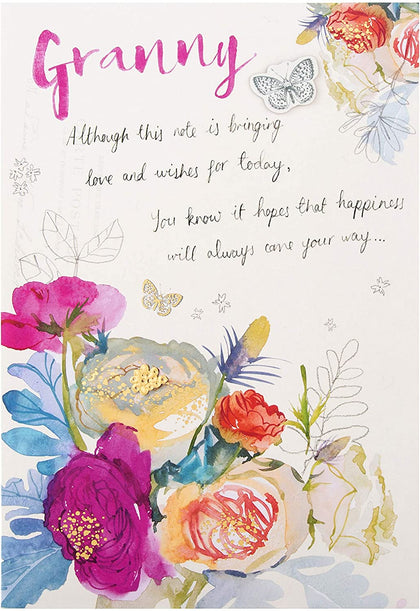 Granny
Although this note is bringing
love and wishes for today,
You know it hopes that happiness
will always come your way...